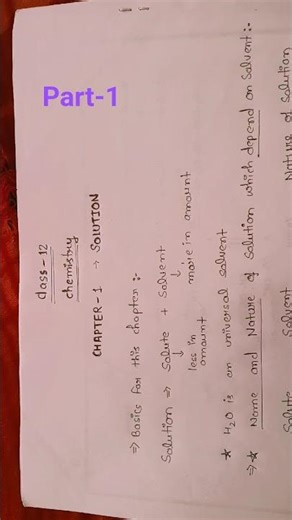 Part-1
class-12
chemistry
CHAPTER-1 → SOLUTION
⇒ Basics for this chapter :-
Solution ⇒ Solute + Solvent
↓ ↓
less in amount more in amount
★ H2O is an universal solvent
⇒★ Name and Nature of solution which depend on Solvent :-
Solute Solvent Nature of Solution